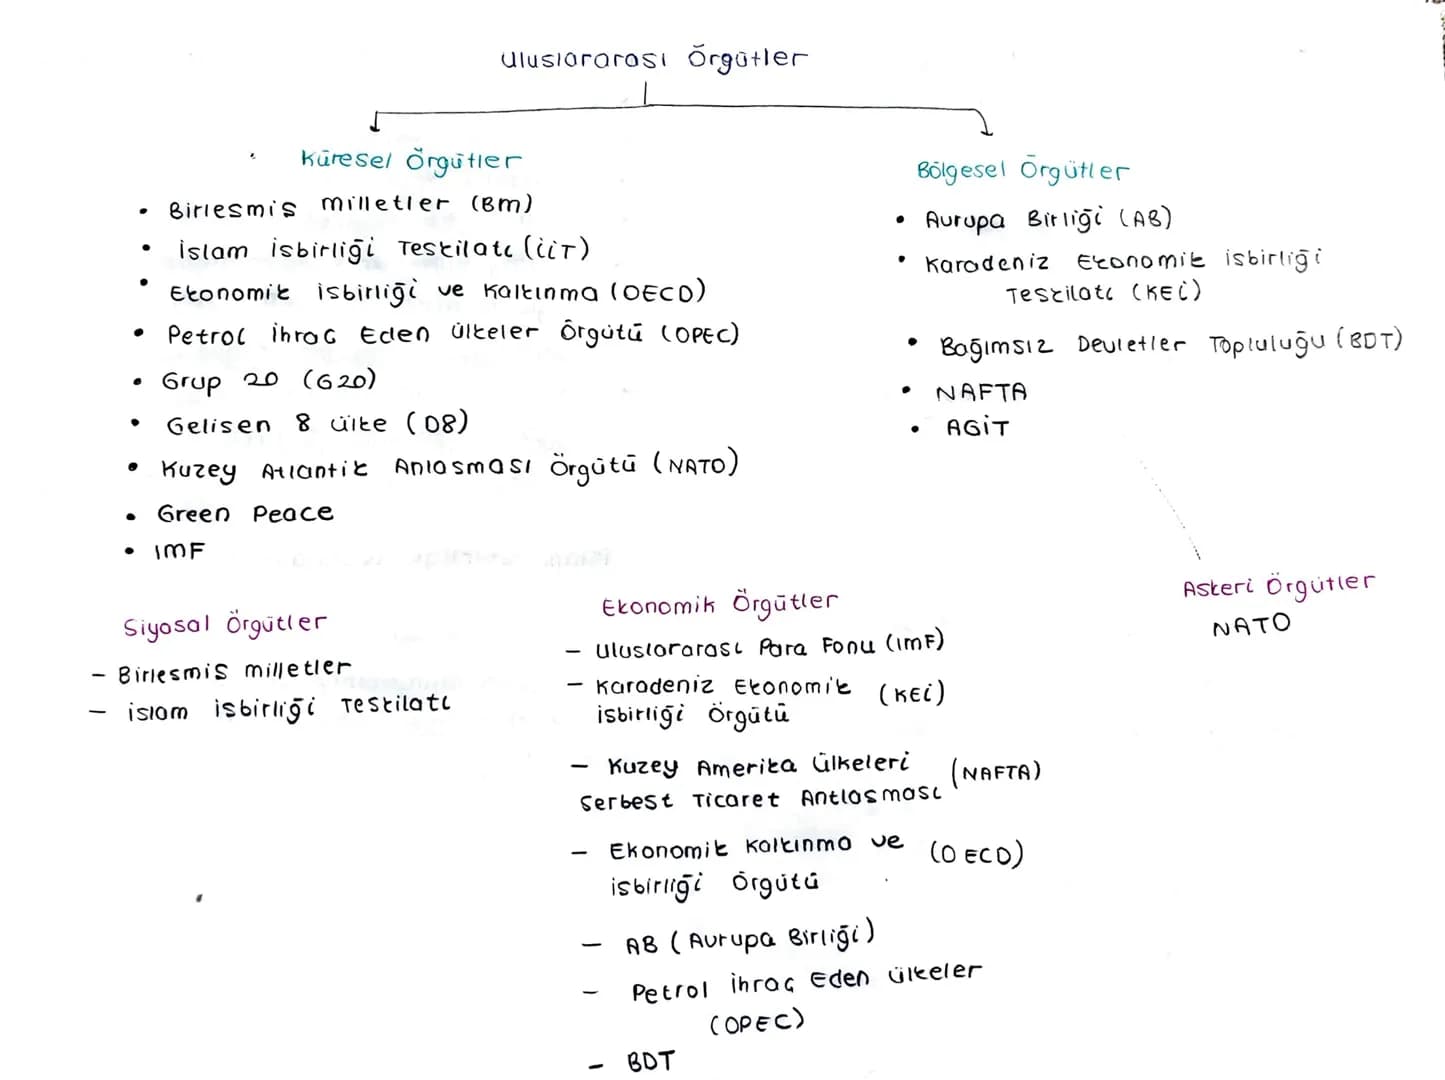 Uluslararası Örgütler
Küresel Örgütler
• Birlesmis milletler (Bm)
• İslam isbirliği Teskilatı (İİT)
• Ekonomik isbirliği ve Kalkınma (OECD)
• Petrol İhraç Eden Ülkeler Örgütü (OPEC)
• Grup 20 (G20)
• Gelisen 8 ülke (D8)
• Kuzey Atlantik Anlasması Örgütü (NATO)
• Green Peace
• IMF
Bölgesel Örgütler
• Avrupa Birliği (AB)
• Karadeniz Ekonomik isbirliği
Teskilatı (KEİ)
• Bağımsız Devletler Topluluğu (BDT)
• NAFTA
• AGİT
Siyasal Örgütler
- Birlesmis milletler
- islam isbirliği Teskilatı
Ekonomik Örgütler
- Uluslararası Para Fonu (ımF)
- Karadeniz Ekonomik (KEİ)
isbirliği Örgütü
- Kuzey Amerika Ülkeleri (NAFTA)
Serbest Ticaret Antlasması
- Ekonomik Kalkınma ve (OECD)
isbirliği Örgütü
- AB (Avrupa Birliği)
- Petrol İhraç Eden Ülkeler
(OPEC)
- BDT
Askeri Örgütler
NATO